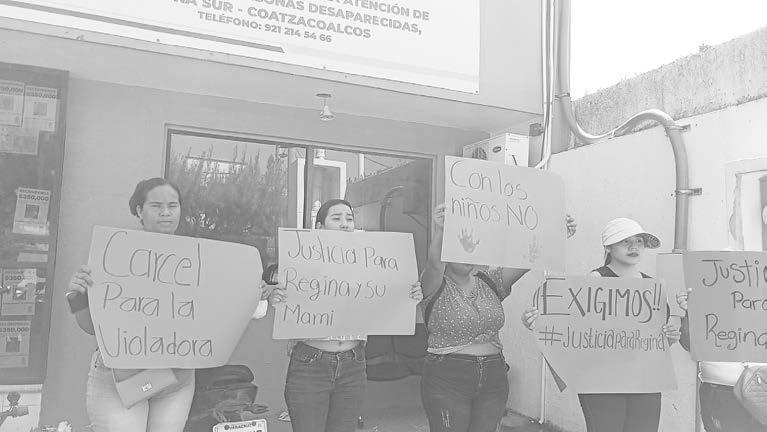 ATENCIÓN DE
PERSONAS DESAPARECIDAS,
SUR - COATZACOALCOS
TELÉFONO: 921 214 54 66
Carcel
Para la
Violadora
Justicia Para
Regina y su
Mami
Con los
niños NO
EXIGIMOS!!
#JusticiaParaRegina
Justicia
Para
Regina
RECOMPENSA
$350,000
VERACRUZ